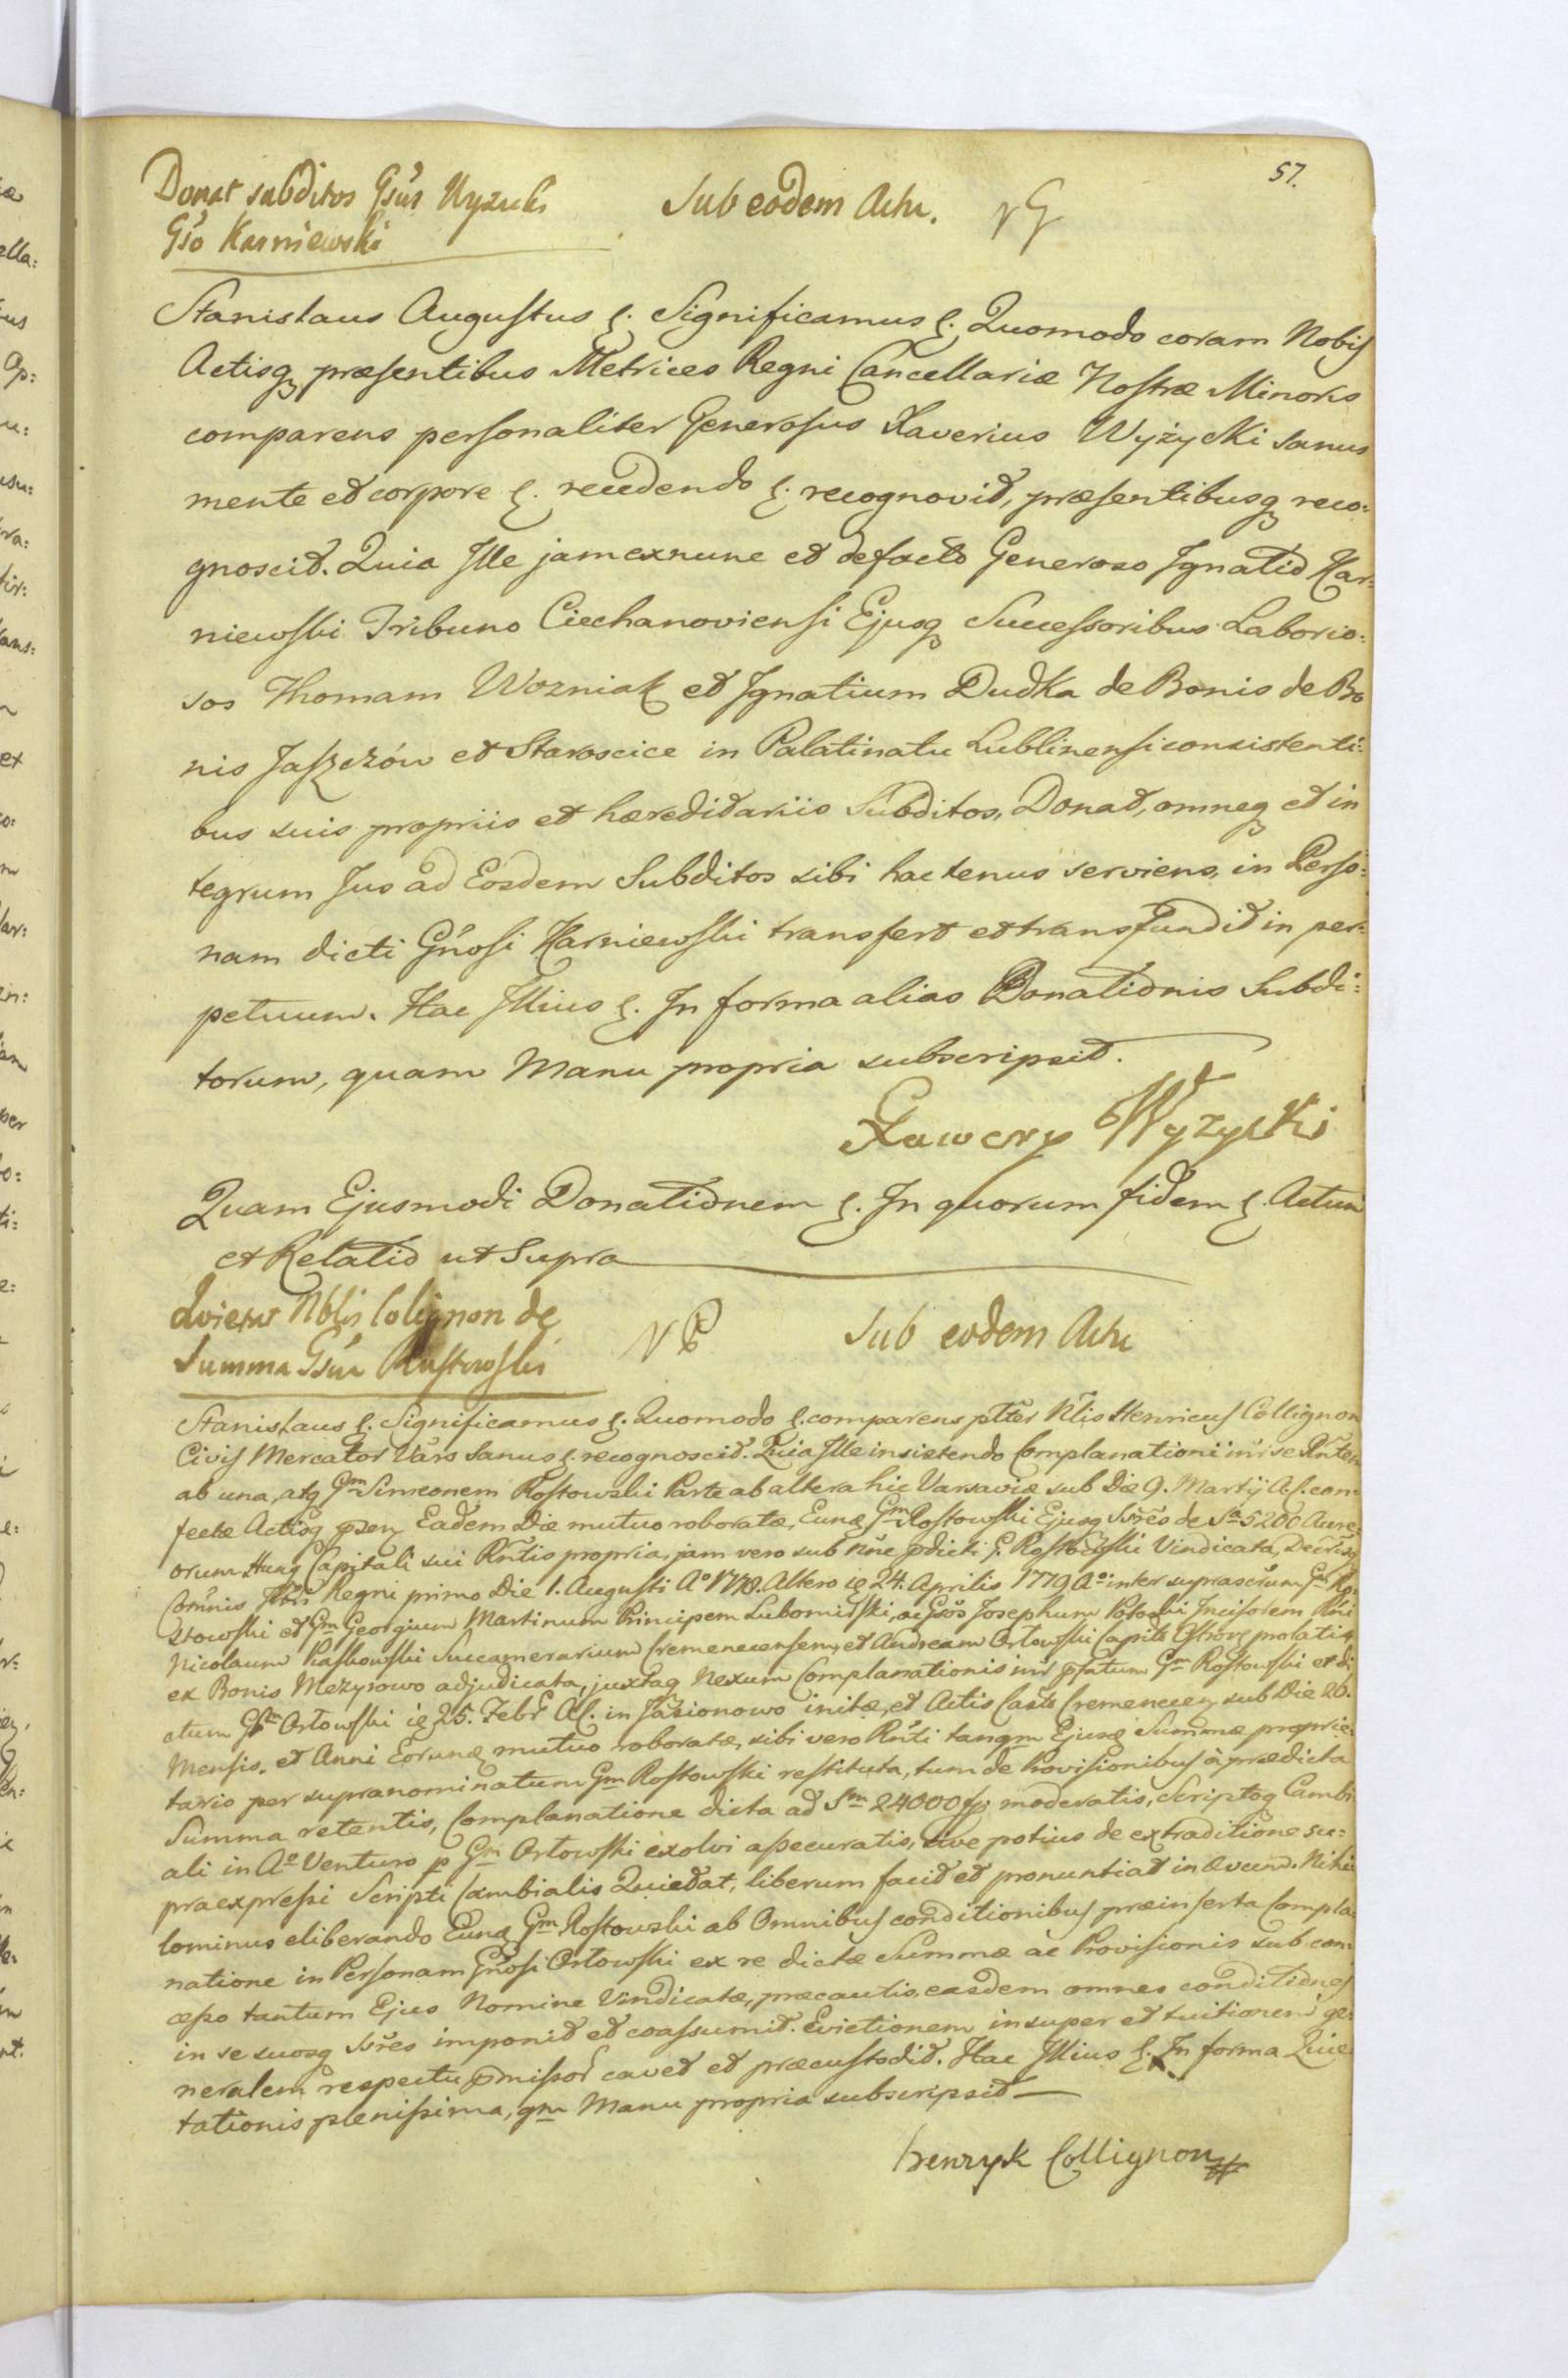 57.
Donat subditos Gsus Wyzicki
Gso Karniewski
Sub eodem Actu.
Stanislaus Augustus &. Significamus &. Quomodo coram Nobis
Actisq præsentibus Metrices Regni Cancellariæ Nostræ Minoris
comparens personaliter Generosus Xaverius Wyżycki sanus
mente et corpore &. recedendo &. recognovit, præsentibusq reco:
gnoscit. Quia Ille jam exnunc et defacto Generoso Ignatio Kar:
niewski Tribuno Ciechanoviensi Ejusq Successoribus Laborio:
sos Thomam Wozniak et Ignatium Dudka de Bonis de Bo
nis Jaszczów et Staroscice in Palatinatu Lublinensi consistenti:
bus suis propriis et hæreditariis Subditos, Donat, omneq et in
tegrum Jus ad Eosdem Subditos sibi hactenus serviens, in Perso:
nam dicti Gnosi Karniewski transfert et transfundit in per:
petuum. Hac Illius &. In forma alias Donationis Subdi:
torum, quam Manu propria subscripsit.
Xawery Wyżycki
Quam Ejusmodi Donationem &. In quorum fidem &. Actum
et Relatio ut Supra
Quietat Nblis Colignon de
Summa Gsum Rostowski
Sub eodem Actu
Stanislaus &. Significamus &. Quomodo &. comparens pltter Nlis Henricus Collignon
Civis Mercator Vars sanus &. recognoscit. Quia Ille insistendo Complanationi inr se Rntem
ab una, atq Gm Simeonem Rostowski Parte ab altera hic Varsaviæ sub Die 9. Martij A. c. con
fectæ Actisq psen Eadem Die mutuo roboratæ, Eunq Gm Rostowski Ejusq Ssres de Sa 5200 Aure:
orum Hung Capitali sui Rntis propria, jam vero sub nne pdicti G. Rostowski Vindicata, Decrisq
Comnis Regni primo Die 1. Augusti Ao 1778. Altero ie 24. Aprilis 1779 Ao inter suprascrum Gm Ro:
stowski et Gm Georgium Martinum Principem Lubomirski, ac Gsos Josephum Potocki Incisorem Rni
Nicolaum Piaskowski Succamerarium Cremenecensem, et Andream Orłowski Capite prolatis
ex Bonis Mezyrowo adjudicata, juxtaq Nexum Complanationis inr pfatum Gm Rostowski et di
ctum Gm Orłowski ie 25. Febr A. c. in initæ, et Actis Casts Cremenecen sub Die 26.
Mensis, et Anni Eorunq mutuo roboratæ, sibi vero Rnti tanqm Ejusq Summæ proprie
tario per supranominatum Gm Rostowski restituta, tum de Provisionibus à prædicta
Summa retentis, Complanatione dicta ad Sm 24000 fp moderatis, Scriptoq Cambi
ali in Ao Venturo p Gm Orłowski exolvi assecuratis, sive potius de extraditione su:
praexpressi Scripti Cambialis Quietat, liberum facit et pronuntiat in ævum. Nihi
lominus eliberando Eunq Gm Rostowski ab Omnibus conditionibus præinserta Compla
natione in Personam Gnosi Orłowski ex re dictæ Summæ ac Provisionis sub con:
cesso tantum Ejus Nomine Vindicatæ, præcautis, easdem omnes conditiones
in se suosq Ssres imponit et coassumit. Evictionem insuper et tuitionem ge:
neralem respectu pmissor cavet et præcustodit. Hac Illius &. In forma Quie
tationis plenissima, qm Manu propria subscripsit
henryk Collignon